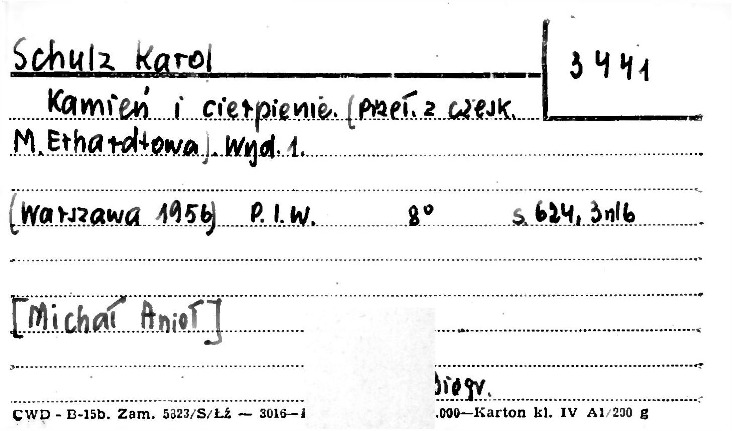 Schulz Karol
3441
Kamień i cierpienie. (Przeł. z czesk.
M. Erhardtowa). Wyd. 1.
(Warszawa 1956) P. I. W. 8° s. 624, 3nlb
[Michał Anioł]
biogr.
CWD - B-15b. Zam. 5823/S/Łź — 3016— .000—Karton kl. IV A1/200 g